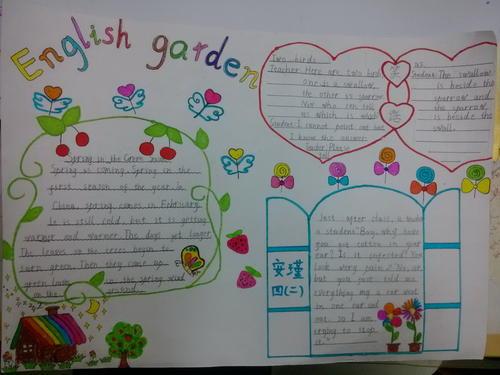 English garden
Spring in the Green
Spring is coming. Spring is the
first season of the year. In
China, spring comes in February.
It is still cold, but it is getting
warmer and warmer. The days get longer
The leaves on the trees begin to
turn green. Then they come up
green
the spring wind
on the
Two birds
Teacher: Here are two birds,
one is a swallow,
the other is sparrow
Now who can tell
us which is which
Student: I cannot point out but
I know the answer.
Teacher: Please
tell
us.
Student: The swallow
is beside the
sparrow and
the sparrow
is beside the
swall
笑
话
Just after class, a
a student "Boy, why have
you got cotton in your
ear? Is it infected?
but you just told me
everything
in one ear and
out. so I am
trying to stop
it.
安瑾
四(二)